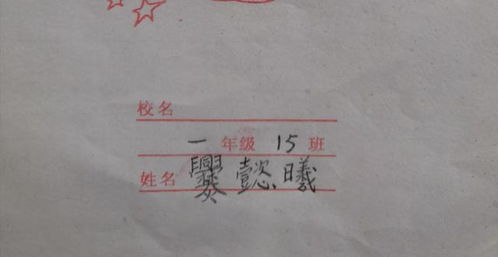 校名
一年级15班
姓名 爨懿曦